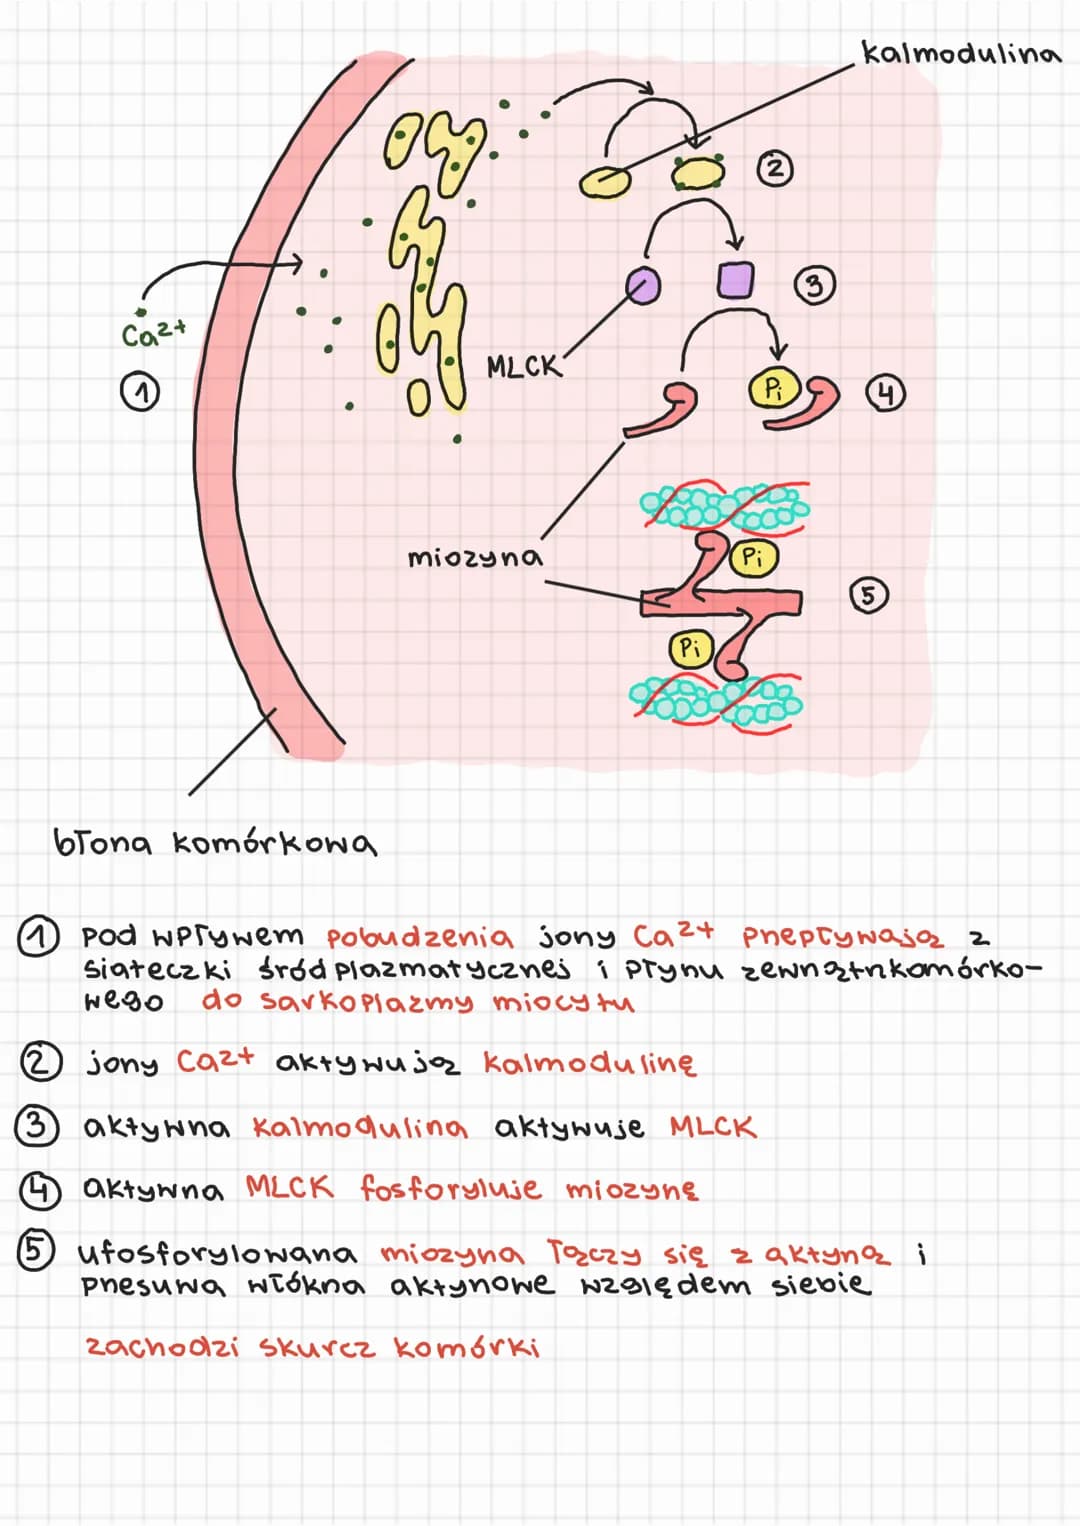 kalmodulina
2
Ca²⁺
3
1
MLCK
Pi
4
miozyna
Pi
5
Pi
błona komórkowa
1 pod wpływem pobudzenia jony Ca²⁺ przepływają z
siateczki śródplazmatycznej i płynu zewnątrzkomórko-
wego do sarkoplazmy miocytu
2 jony Ca2+ aktywują kalmodulinę
3 aktywna kalmodulina aktywuje MLCK
4 aktywna MLCK fosforyluje miozynę
5 ufosforylowana miozyna łączy się z aktyną i
przesuwa włókna aktynowe względem siebie
zachodzi skurcz komórki